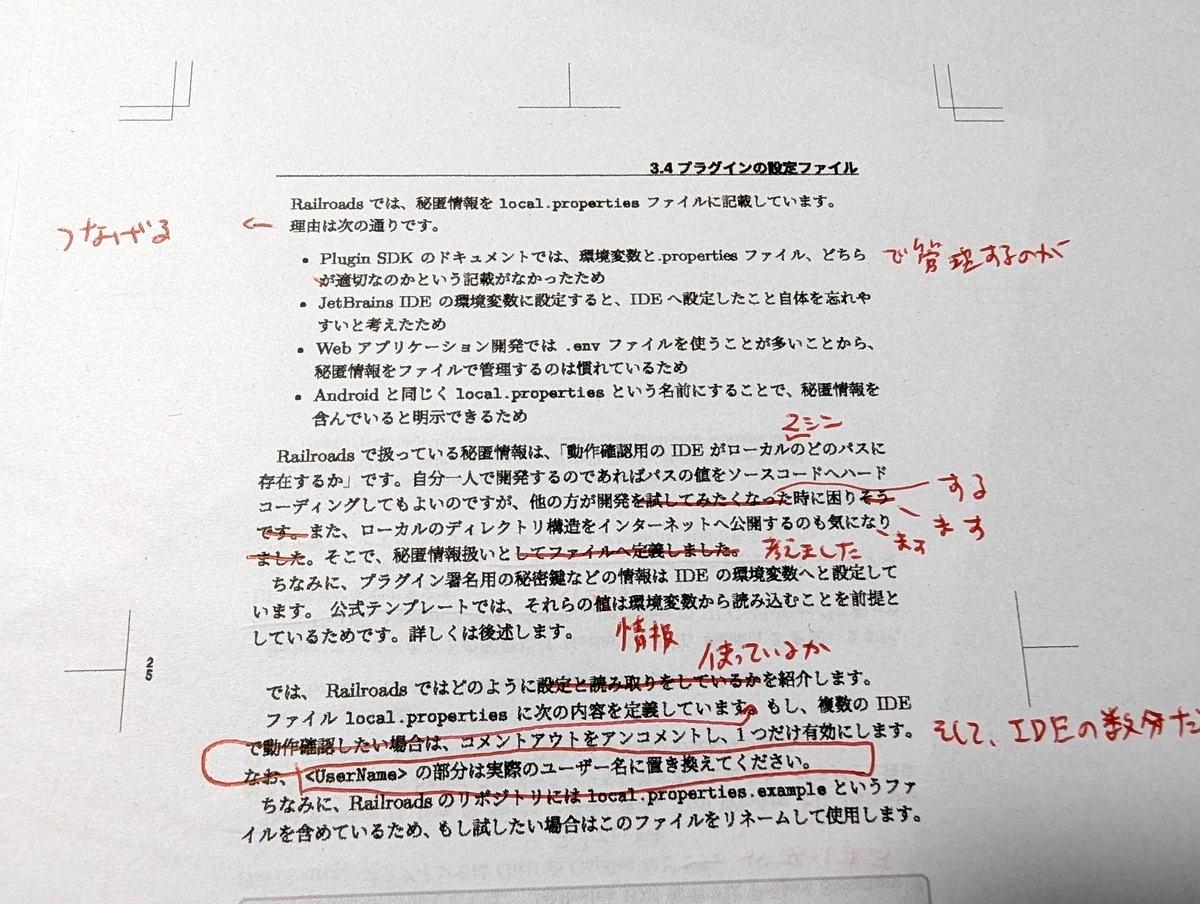 3.4 プラグインの設定ファイル
Railroads では、秘匿情報を local.properties ファイルに記載しています。
つなげる ← 理由は次の通りです。
• Plugin SDK のドキュメントでは、環境変数と.properties ファイル、どちら で管理するのが
が適切なのかという記載がなかったため
• JetBrains IDE の環境変数に設定すると、IDE へ設定したこと自体を忘れや
すいと考えたため
• Web アプリケーション開発では .env ファイルを使うことが多いことから、
秘匿情報をファイルで管理するのは慣れているため
• Android と同じく local.properties という名前にすることで、秘匿情報を
含んでいると明示できるため
マシン
Railroads で扱っている秘匿情報は、「動作確認用の IDE がローカルのどのパスに
存在するか」です。自分一人で開発するのであればパスの値をソースコードへハード
する
コーディングしてもよいのですが、他の方が開発を試してみたくなった時に困りそう
ます
です。また、ローカルのディレクトリ構造をインターネットへ公開するのも気になり
ます
ました。そこで、秘匿情報扱いとしてファイルへ定義しました。 考えました
ちなみに、プラグイン署名用の秘密鍵などの情報は IDE の環境変数へと設定して
います。 公式テンプレートでは、それらの値は環境変数から読み込むことを前提と
しているためです。詳しくは後述します。
情報
使っているか
25
では、 Railroads ではどのように設定と読み取りをしているかを紹介します。
ファイル local.properties に次の内容を定義しています。もし、複数の IDE
で動作確認したい場合は、コメントアウトをアンコメントし、1 つだけ有効にします。
そして、IDEの数分だ
なお、<UserName> の部分は実際のユーザー名に置き換えてください。
ちなみに、Railroads のリポジトリには local.properties.example というファ
イルを含めているため、もし試したい場合はこのファイルをリネームして使用します。